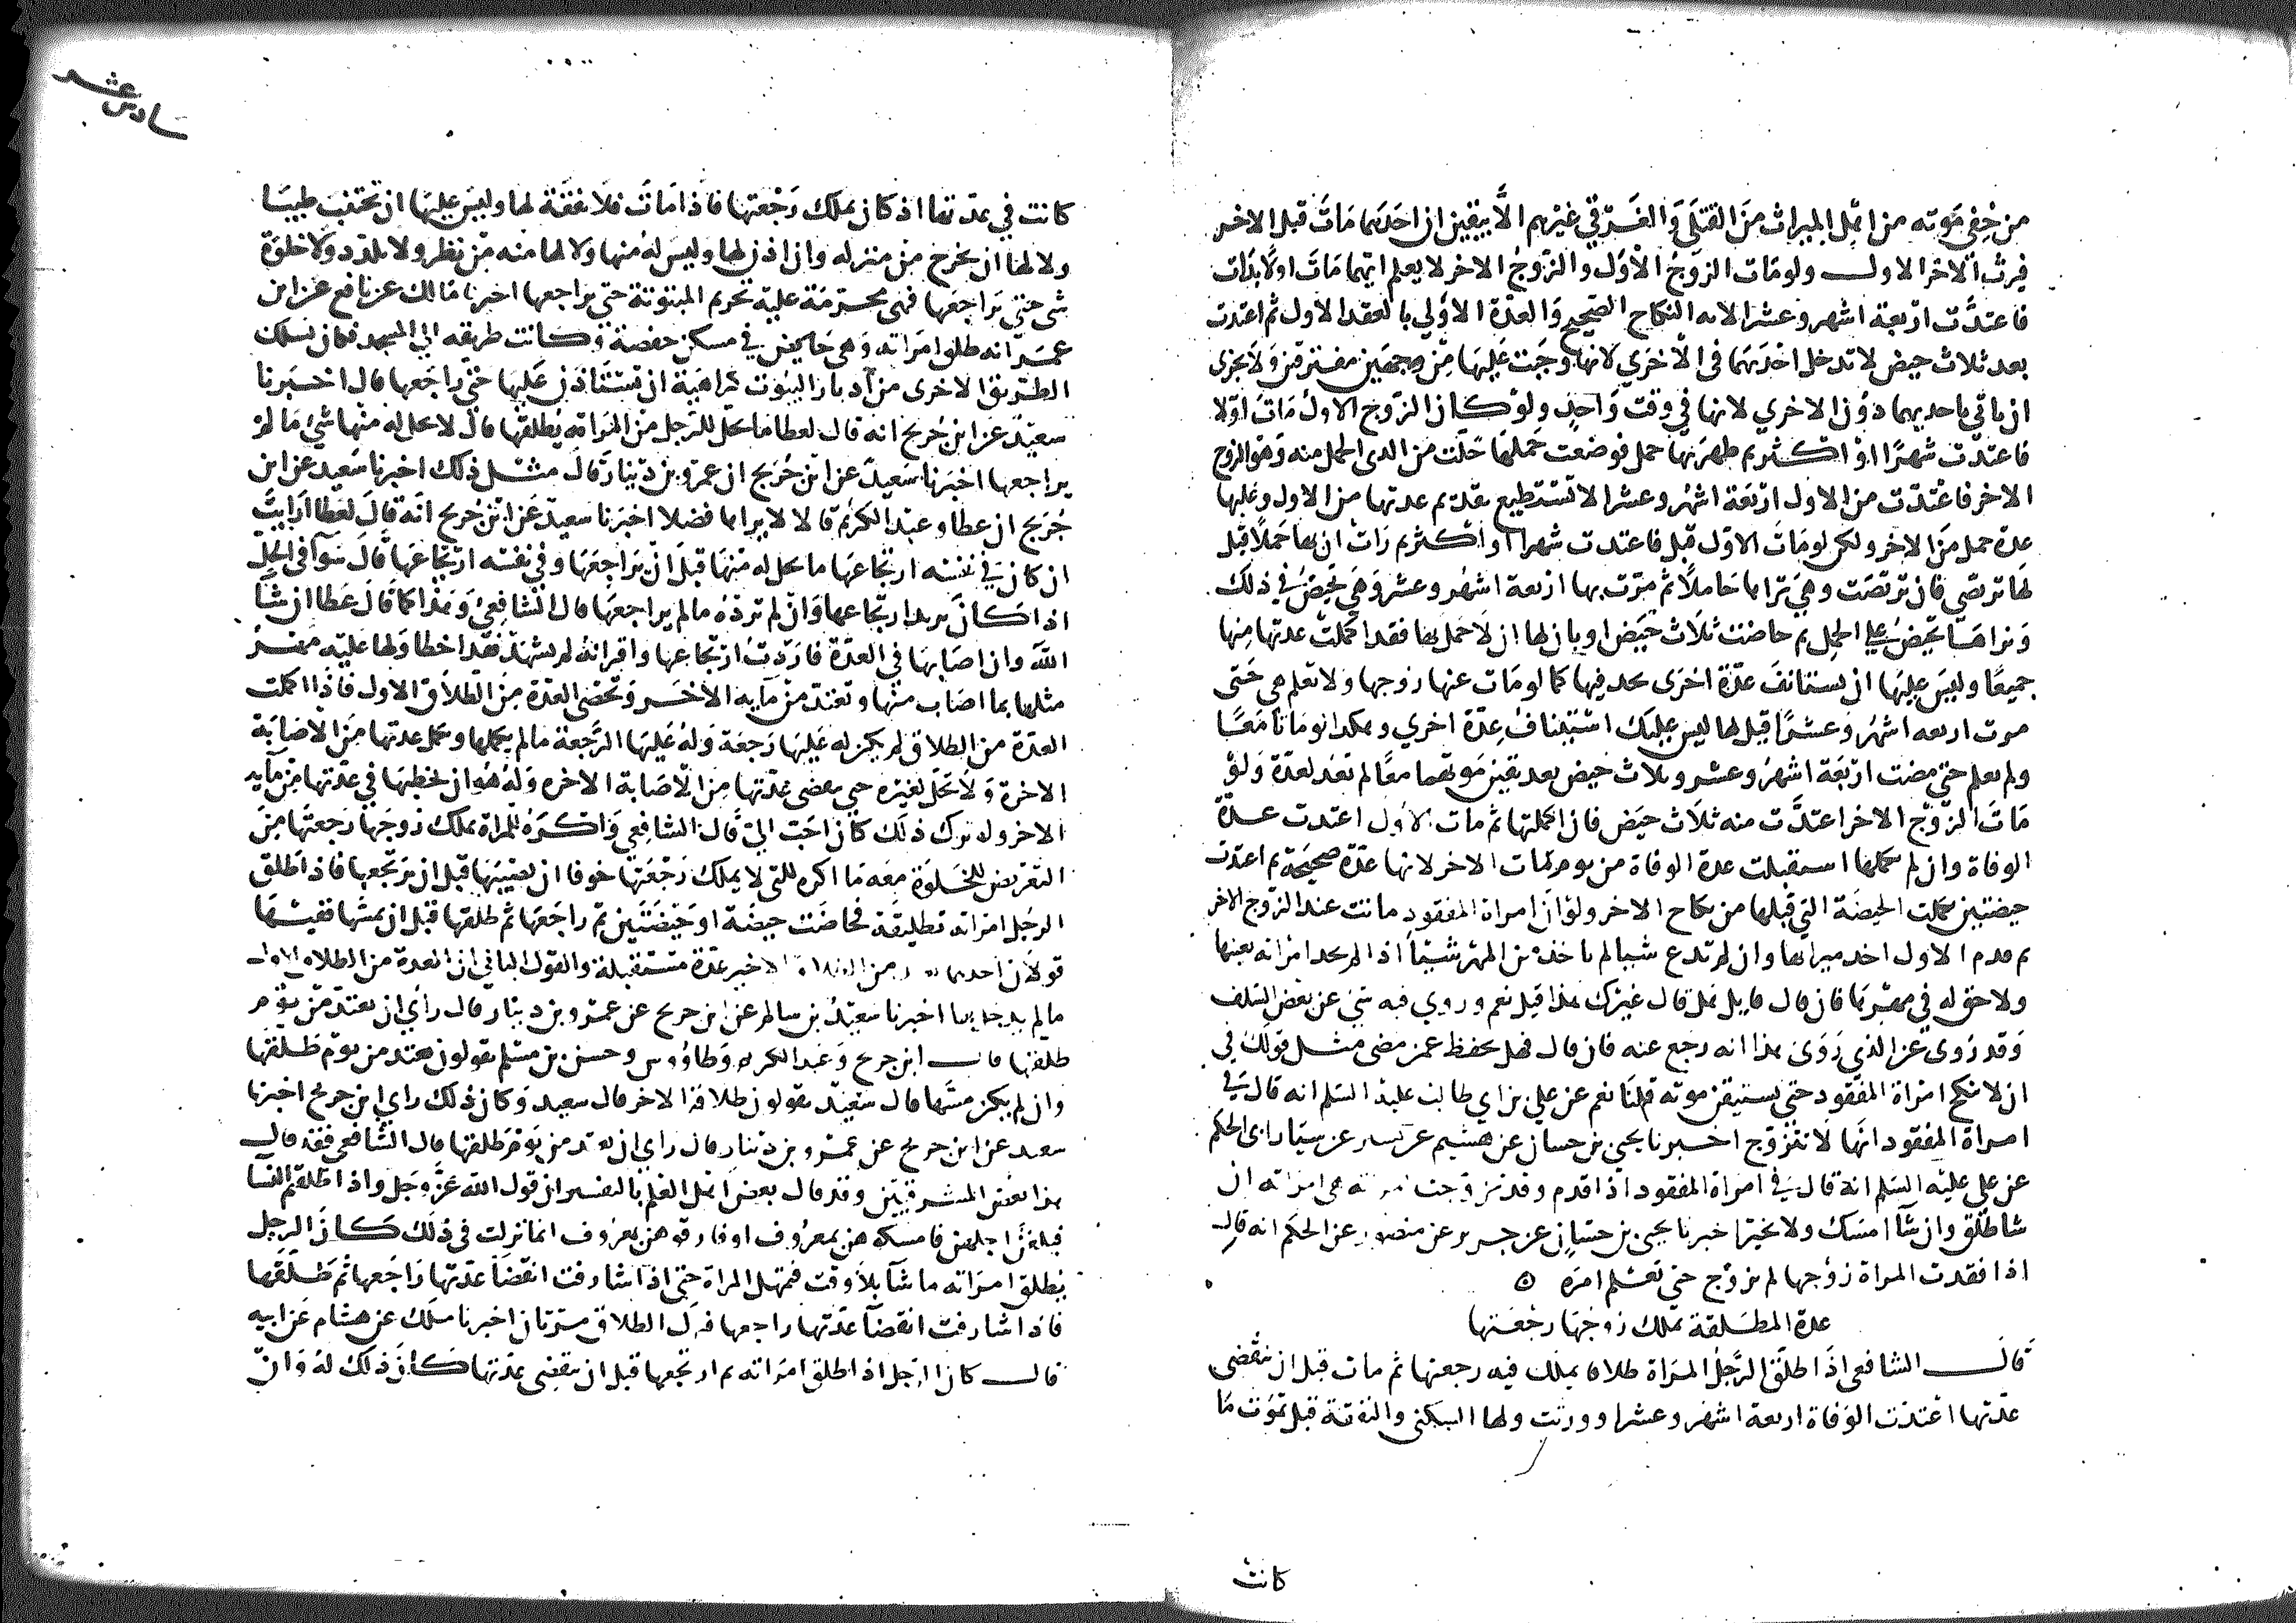 من خفي موته من اهل الميراث من القتلى والغرقى غيرهم الا بيقين ان احدهما مات قبل الاخر
فيرث الاخر الاول ولو مات الزوج الاول والزوج الاخر لا يعلم ايهما مات اولا بدات
فاعتدت اربعة اشهر وعشرا لانه النكاح الصحيح والعدة الاولي بالعقد الاول ثم اعتدت
بعد ثلاث حيض لا تدخل احديهما في الاخري لانها وجبت عليها من وجهين مفترقين ولا يجزي
ان ياتي باحديهما دون الاخري لانها في وقت واحد ولو كان الزوج الاول مات اولا
فاعتدت شهرا او اكثر ثم ظهر بها حمل فوضعت حملها حلت من الذى الحمل منه وهو الزوج
الاخر فاعتدت من الاول اربعة اشهر وعشرا لا تستطيع تقدم عدتها من الاول وعليها
عدة حمل من الاخر ولكن لو مات الاول قبل فاعتدت شهرا او اكثر ثم رات ان بها حملا قيل
لها تربصي فان تربصت وهي تراها حاملا ثم مرت بها اربعة اشهر وعشر وهي تحيض في ذلك
وتراها تحيض على الحمل ثم حاضت ثلاث حيض او بان لها ان لا حمل بها فقد اكملت عدتها منها
جميعا وليس عليها ان تستانف عدة اخرى تحد فيها كما لو مات عنها زوجها ولا تعلم هي حتى
مرت اربعه اشهر وعشرا قيل لها ليس عليك استيناف عدة اخري وهكذا لو ماتا معا
ولم يعلم حتى مضت اربعة اشهر وعشر وثلاث حيض بعد يقين موتهما معا لم تعد لعدة ولو
مات الزوج الاخر اعتدت منه ثلاث حيض فان اكملتها ثم مات الاول اعتدت عدة
الوفاة وان لم تكملها استقبلت عدة الوفاة من يوم مات الاخر لانها عدة صحيحة ثم اعتدت
حيضتين تكملت الحيضة التي قبلها من نكاح الاخر ولو ان امراة المفقود ماتت عند الزوج الاخر
ثم قدم الاول اخذ ميراثها وان لم تدع شيا لم ياخذ من المهر شيئا اذا لم يجد امراته بعينها
ولا حق له في مهرها فان قال قايل فهل قال غيرك هذا قيل نعم وروي فيه شي عن بعض السلف
وقد روى عن الذي روى هذا انه رجع عنه فان قال فهل تحفظ عمن مضى مثل قولك في
ان لا تنكح امراة المفقود حتى يستيقن موته قلنا نعم عن علي بن ابي طالب عليه السلم انه قال في
امراة المفقود انها لا تتزوج اخبرنا يحيى بن حسان عن هشيم عن سيار ابي الحكم
عن علي عليه السلم انه قال في امراة المفقود اذا قدم وقد تزوجت هي امراته ان
شا طلق وان شا امسك ولا تخير اخبرنا يحيى بن حسان عن جرير عن منصور عن الحكم انه قال
اذا فقدت المراة زوجها لم تزوج حتى تعلم امره
عدة المطلقة يملك زوجها رجعتها
قال الشافعي اذا طلق الرجل المراة طلاقا يملك فيه رجعتها ثم مات قبل ان تنقضي
عدتها اعتدت الوفاة اربعة اشهر وعشرا وورثت ولها السكنى والنفقة قبل تموت ما
كانت
كانت في عدتها اذ كان يملك رجعتها فاذا مات فلا نفقة لها وليس عليها ان تجتنب طيبا
ولا لها ان تخرج من منزله وان اذن لها وليس له منها ولا لها منه من نظر ولا تلذد ولا خلوة
شي حتى يراجعها فهي محرمة عليه تحريم المبتوتة حتى يراجعها اخبرنا مالك عن نافع عن ابن
عمر انه طلق امراته وهي حايض في مسكن حفصة وكانت طريقه الي المسجد فكان يسلك
الطريق الاخرى من ادبار البيوت كراهية ان يستاذن عليها حتى راجعها قال اخبرنا
سعيد عن ابن جريج انه قال لعطا ما يحل للرجل من المراة يطلقها قال لا يحل له منها شي ما لم
يراجعها اخبرنا سعيد عن ابن جريج ان عمرو بن دينار قال مثل ذلك اخبرنا سعيد عن ابن
جريج ان عطا وعبد الكريم قالا لا يراها فضلا اخبرنا سعيد عن ابن جريج انه قال لعطا ارايت
ان كان في نفسه ارتجاعها ما يحل له منها قبل ان يراجعها وفي نفسه ارتجاعها قال سوا في الحل
اذا كان يريد ارتجاعها وان لم يرده ما لم يراجعها قال الشافعي وهذا كما قال عطا ان شا
الله وان اصابها في العدة فاردت ارتجاعها واقر انه لم يشهد فقد اخطا ولها عليه مهر
مثلها بما اصاب منها وتعتد من مايه الاخر وتحصى العدة من الطلاق الاول فاذا اكملت
العدة من الطلاق لم يكن له عليها رجعة وله عليها الرجعة ما لم تكملها وتكمل عدتها من الاصابة
الاخرة ولا تحل لغيره حتى تنقضي عدتها من الاصابة الاخره وله هو ان يخطبها في عدتها من مايه
الاخر ولو ترك ذلك كان احب الي قال الشافعي واكره للمراة يملك زوجها رجعتها من
التعريض للخلوة معه ما اكره للتي لا يملك رجعتها خوفا ان يصيبها قبل ان يرتجعها فاذا طلق
الرجل امراته تطليقة فحاضت حيضة او حيضتين ثم راجعها ثم طلقها قبل ان يمسها ففيها
قولان احدهما من الطلاق الاخير عدة مستقبلة والقول الثاني ان العدة من الطلاق الاول
ما لم يدخل بها اخبرنا سعيد بن سالم عن ابن جريج عن عمرو بن دينار قال راي ان تعتد من يوم
طلقها قال ابن جريج وعبد الكريم وطاووس وحسن بن مسلم يقولون تعتد من يوم طلقها
وان لم يكن مسها قال سعيد يقولون طلاقه الاخر قال سعيد وكان ذلك راي ابن جريج اخبرنا
سعيد عن ابن جريج عن عمرو بن دينار قال راي ان تعتد من يوم طلقها قال الشافعي فقد قال
هذا بعض المشرقيين وقد قال بعض اهل العلم بالتفسير ان قول الله عز وجل واذا طلقتم النسا
فبلغن اجلهن فامسكوهن بمعروف او فارقوهن بمعروف انما نزلت في ذلك كان الرجل
يطلق امراته ما شا بلا وقت فيمهل المراة حتى اذا شارفت انقضا عدتها راجعها ثم طلقها
فاذا شارفت انقضا عدتها راجعها فنزل الطلاق مرتان اخبرنا ملك عن هشام عن ابيه
قال كان الرجل اذا طلق امراته ثم ارتجعها قبل ان تنقضي عدتها كان ذلك له وان